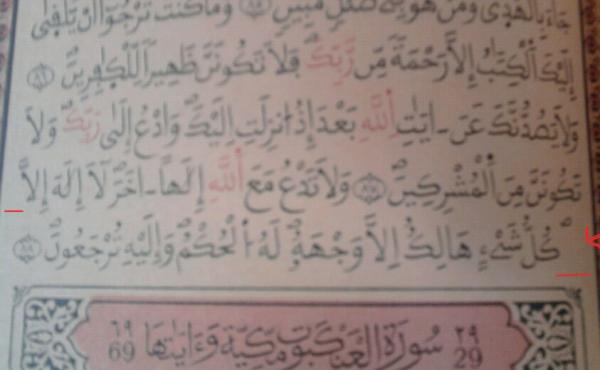 جَآءَ بِالْهُد۪ىٰ وَمَنْ هُوَ فِے ضَلَٰلٍ مُّبِينٍ ٨٥ وَمَا كُنتَ تَرْجُوٓاْ أَنْ يُّلْق۪ىٰٓ
إِلَيْكَ اَلْكِتَٰبُ إِلَّا رَحْمَةً مِّن رَّبِّكَ فَلَا تَكُونَنَّ ظَهِيراً لِّلْكٰ۪فِرِينَ ٨٦
وَلَا يَصُدُّنَّكَ عَنَ ـايَٰتِ اِللَّهِ بَعْدَ إِذُ ا۟نزِلَتِ اِلَيْكَ وَادْعُ إِلَىٰ رَبِّكَ وَلَا
تَكُونَنَّ مِنَ اَلْمُشْرِكِينَ ٨٧ وَلَا تَدْعُ مَعَ اَللَّهِ إِلَٰهاً ـاخَرَ لَآ إِلَٰهَ إِلَّا
كُلُّ شَےْءٍ هَالِكٌ اِلَّا وَجْهَهُۥ لَهُ اُلْحُكْمُ وَإِلَيْهِ تُرْجَعُونَ ٨٨
٢٩ 29 سُورَةُ الْعَنْكَبُوتِ مَكِّيَّة وَءَايَٰتُهَا ٦٩ 69